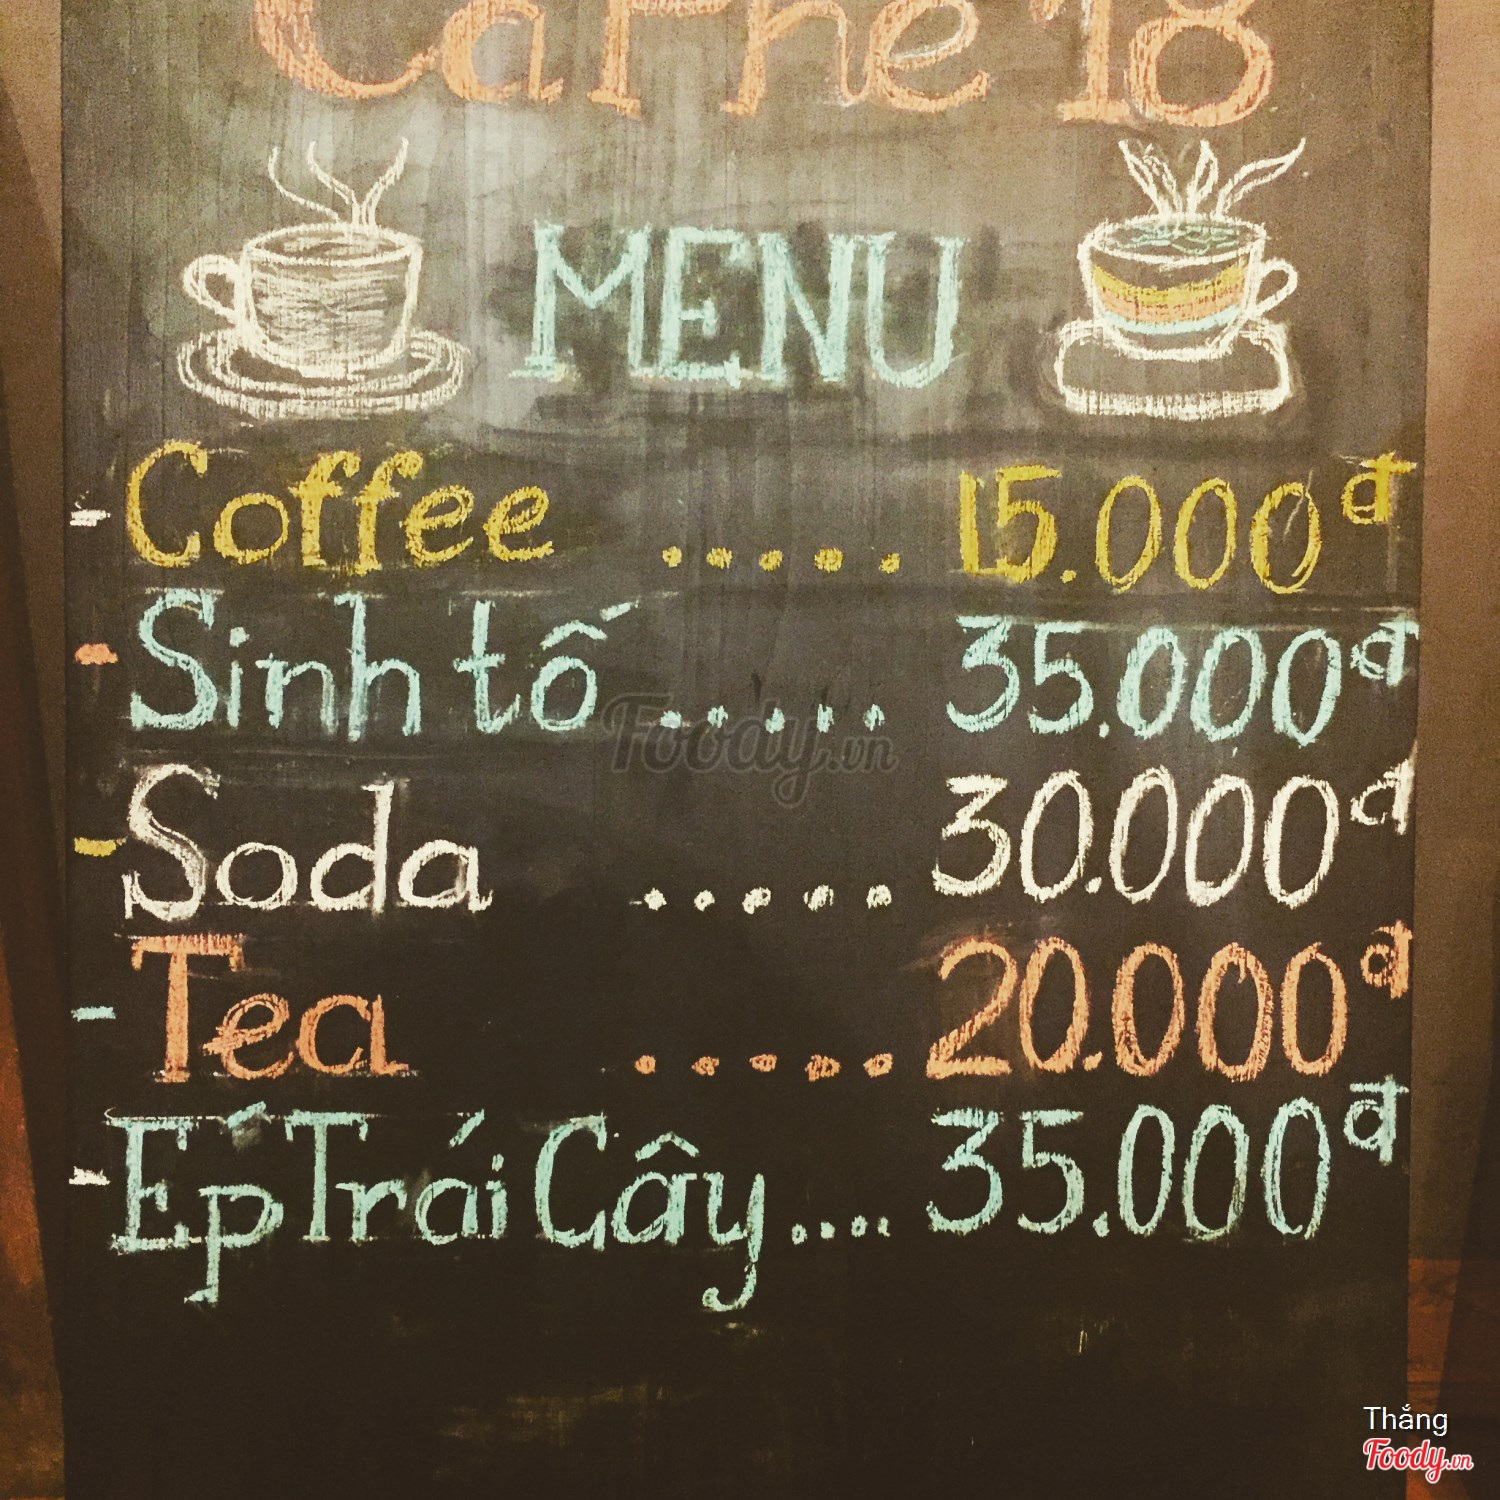 CaFhe 18
MENU
- Coffee ..... 15.000đ
- Sinh tố ..... 35.000đ
Foody.vn
- Soda ..... 30.000đ
- Tea ..... 20.000đ
- Ép Trái Cây .... 35.000đ
Thắng
Foody.vn